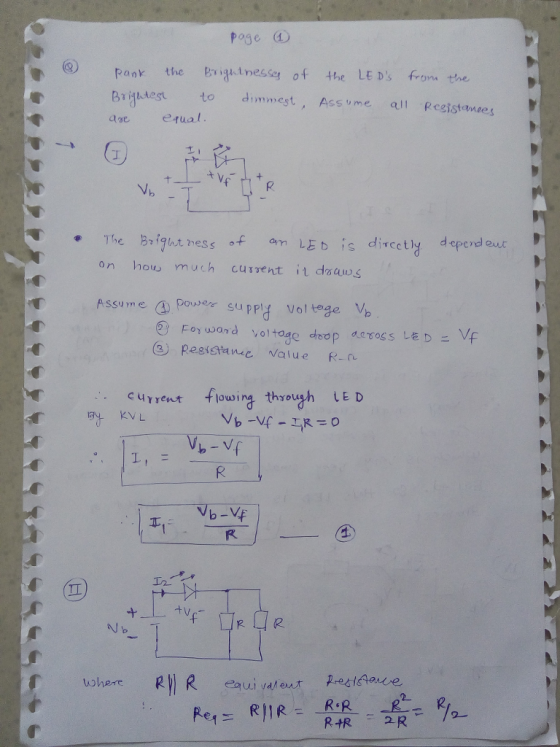 Page ①
Q Rank the Brightnesses of the LED's from the
Brightest to dimmest, Assume all Resistances
are equal.
→ I
I₁
Vb + - + Vf - + R -
• The Brightness of an LED is directly dependent
on how much current it draws
Assume ① power supply voltage Vb
② Forward voltage drop across LED = Vf
③ Resistance value R-Ω
∴ current flowing through LED
By KVL Vb - Vf - I₁R = 0
∴ I₁ = Vb - Vf / R
∴ I₁ = Vb - Vf / R —— ①
II
I₂
Vb + - + Vf - R R
where R || R equivalent Resistance
∴ Req = R || R = R·R / R+R = R² / 2R = R/2